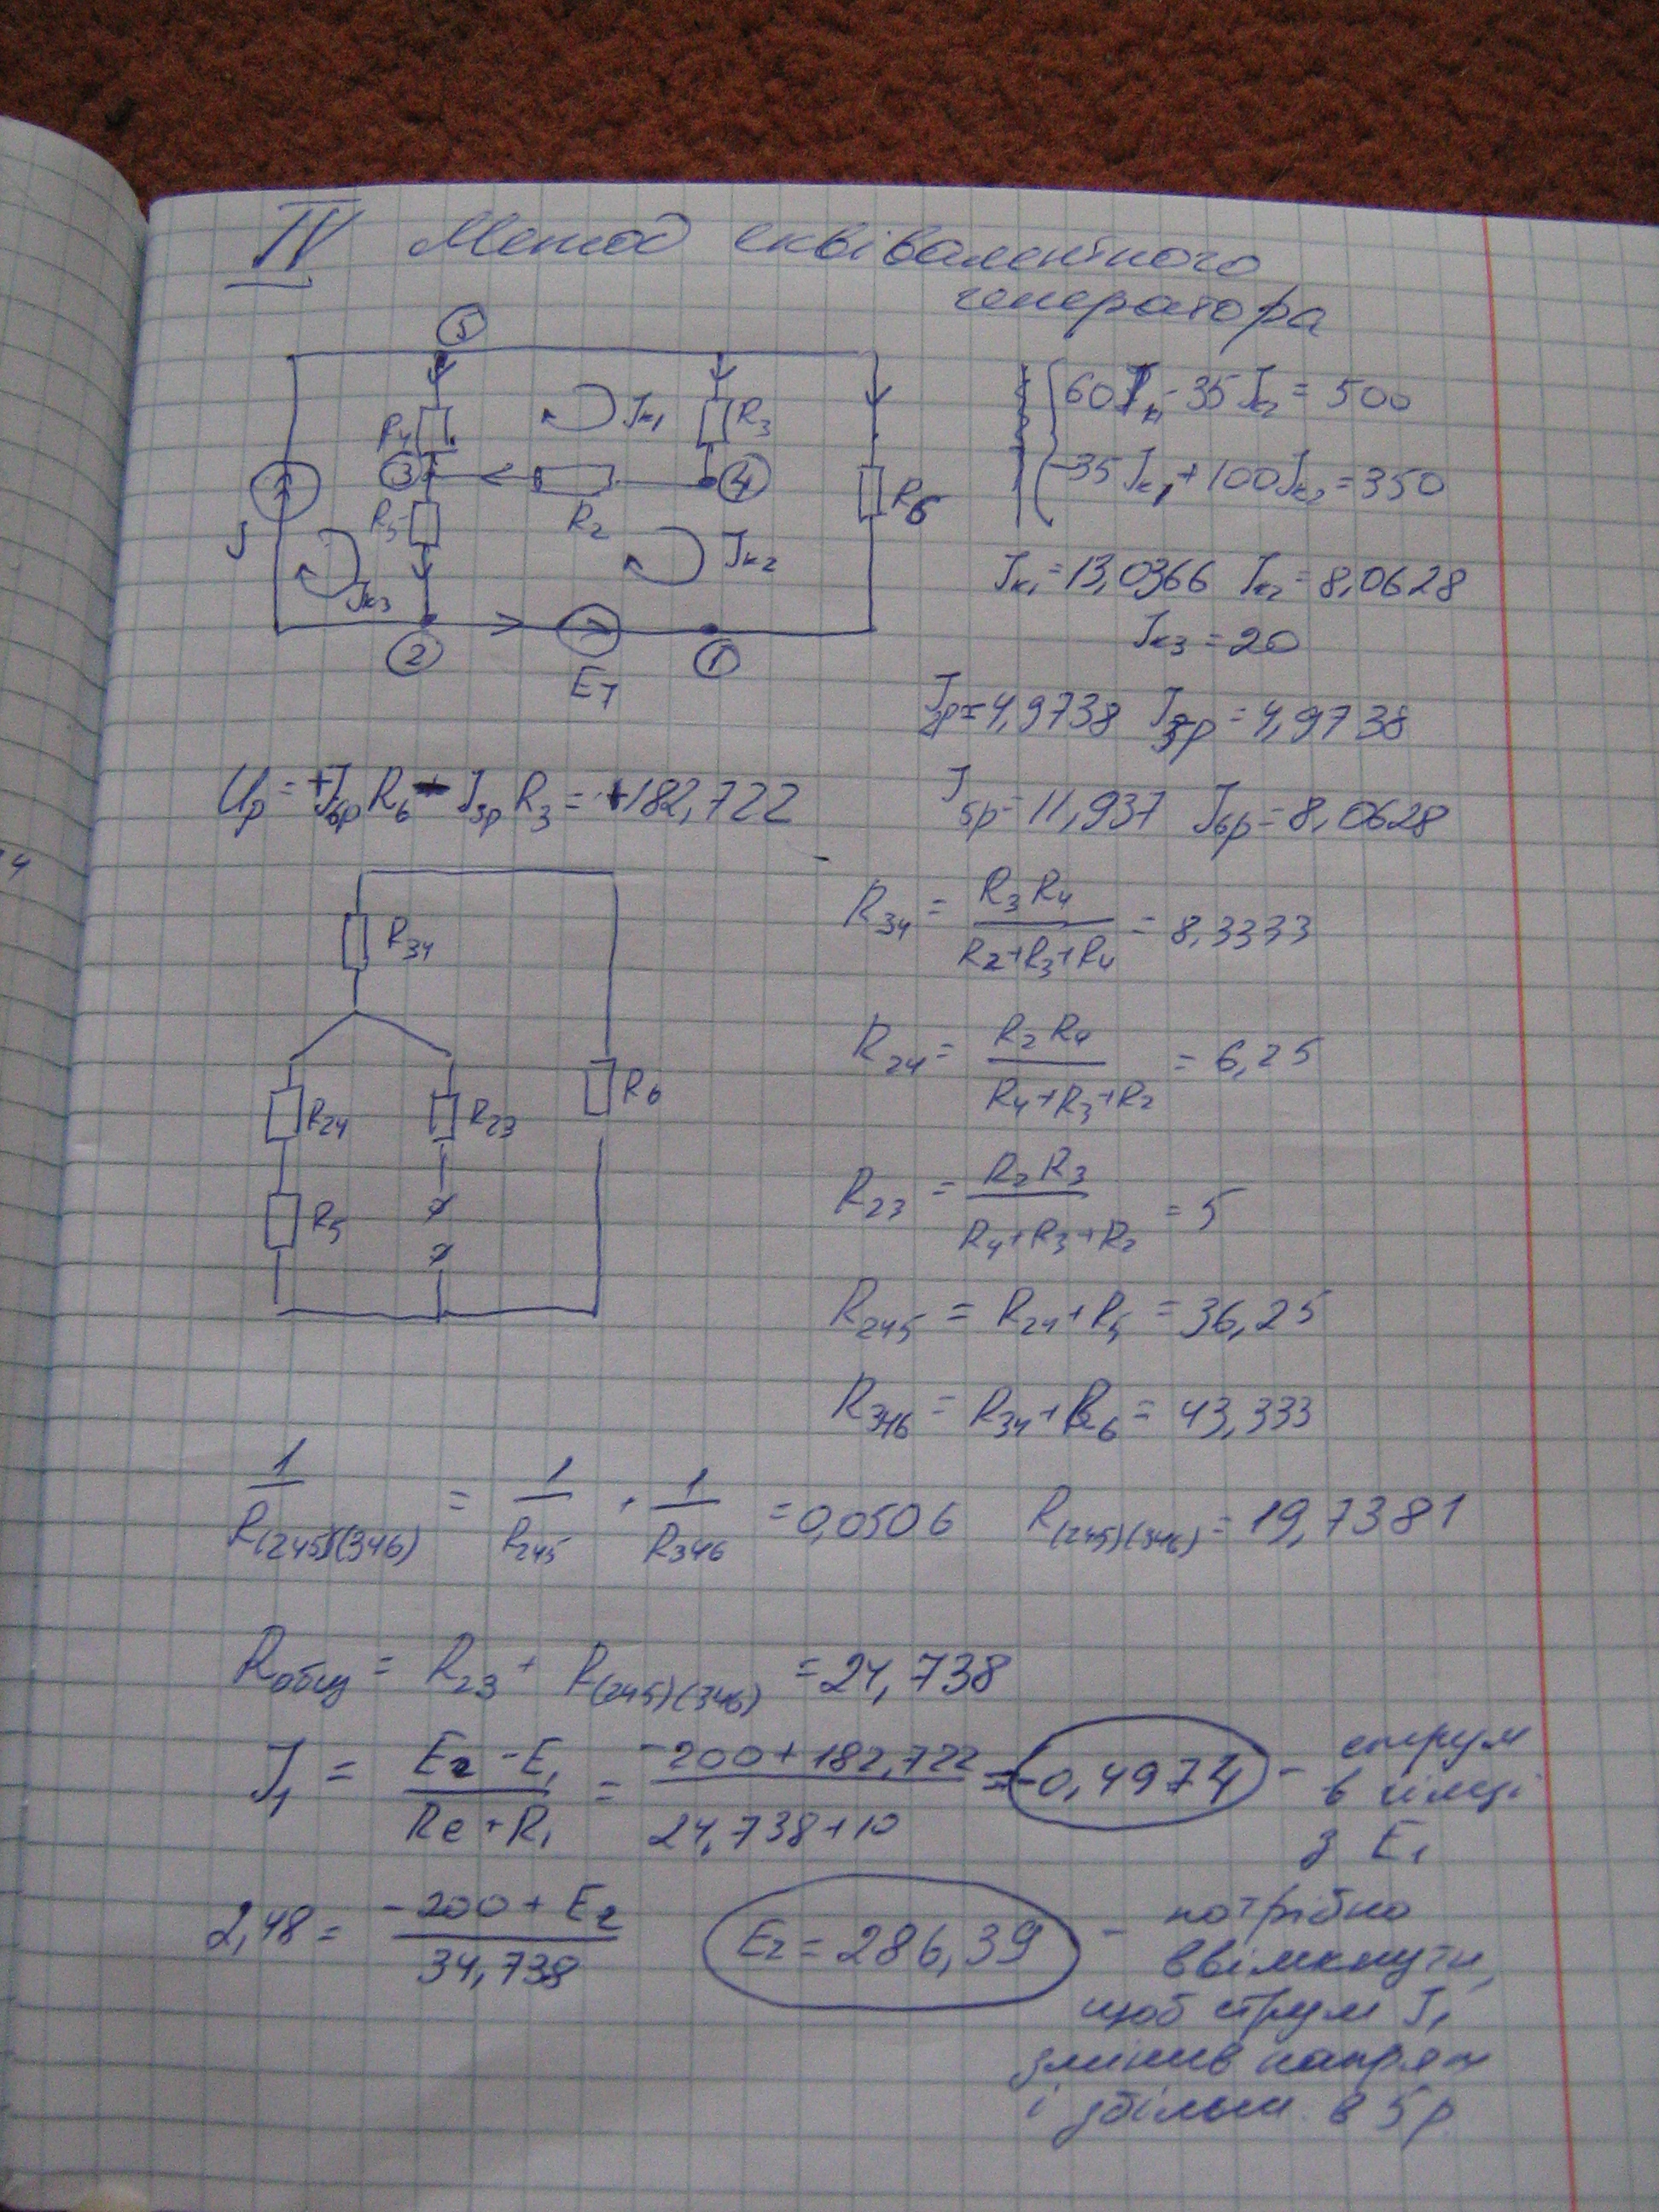 IV Метод еквівалентного
генератора
5
R4
Jк1
R3
3
4
R5
R2
R6
J
Jк3
Jк2
2
1
E7
60Jк1 - 35Jк2 = 500
-35Jк1 + 100Jк2 = 350
Jк1 = 13,0366 Jк2 = 8,0628
Jк3 = 20
J2р = 4,9738 J3р = 4,9738
J5р = 11,937 J6р = 8,0628
Uр = +J6р R6 - J3р R3 = +182,722
R34
R24
R23
R6
R5
R34 = R3 R4 / R2+R3+R4 = 8,3333
R24 = R2 R4 / R4+R3+R2 = 6,25
R23 = R2 R3 / R4+R3+R2 = 5
R245 = R24+R5 = 36,25
R346 = R34+R6 = 43,333
1 / R(245)(346) = 1 / R245 + 1 / R346 = 0,0506 R(245)(346) = 19,7381
Rобщ = R23 + R(245)(346) = 24,738
J1 = E2 - E1 / Re + R1 = -200+182,722 / 24,738+10 = -0,4974 - струм
в гілці
з E1
2,48 = -200 + E2 / 34,738 E2 = 286,39 - потрібно
ввімкнути,
щоб струм J1
змінив напрям
і збільш. в 5 р.